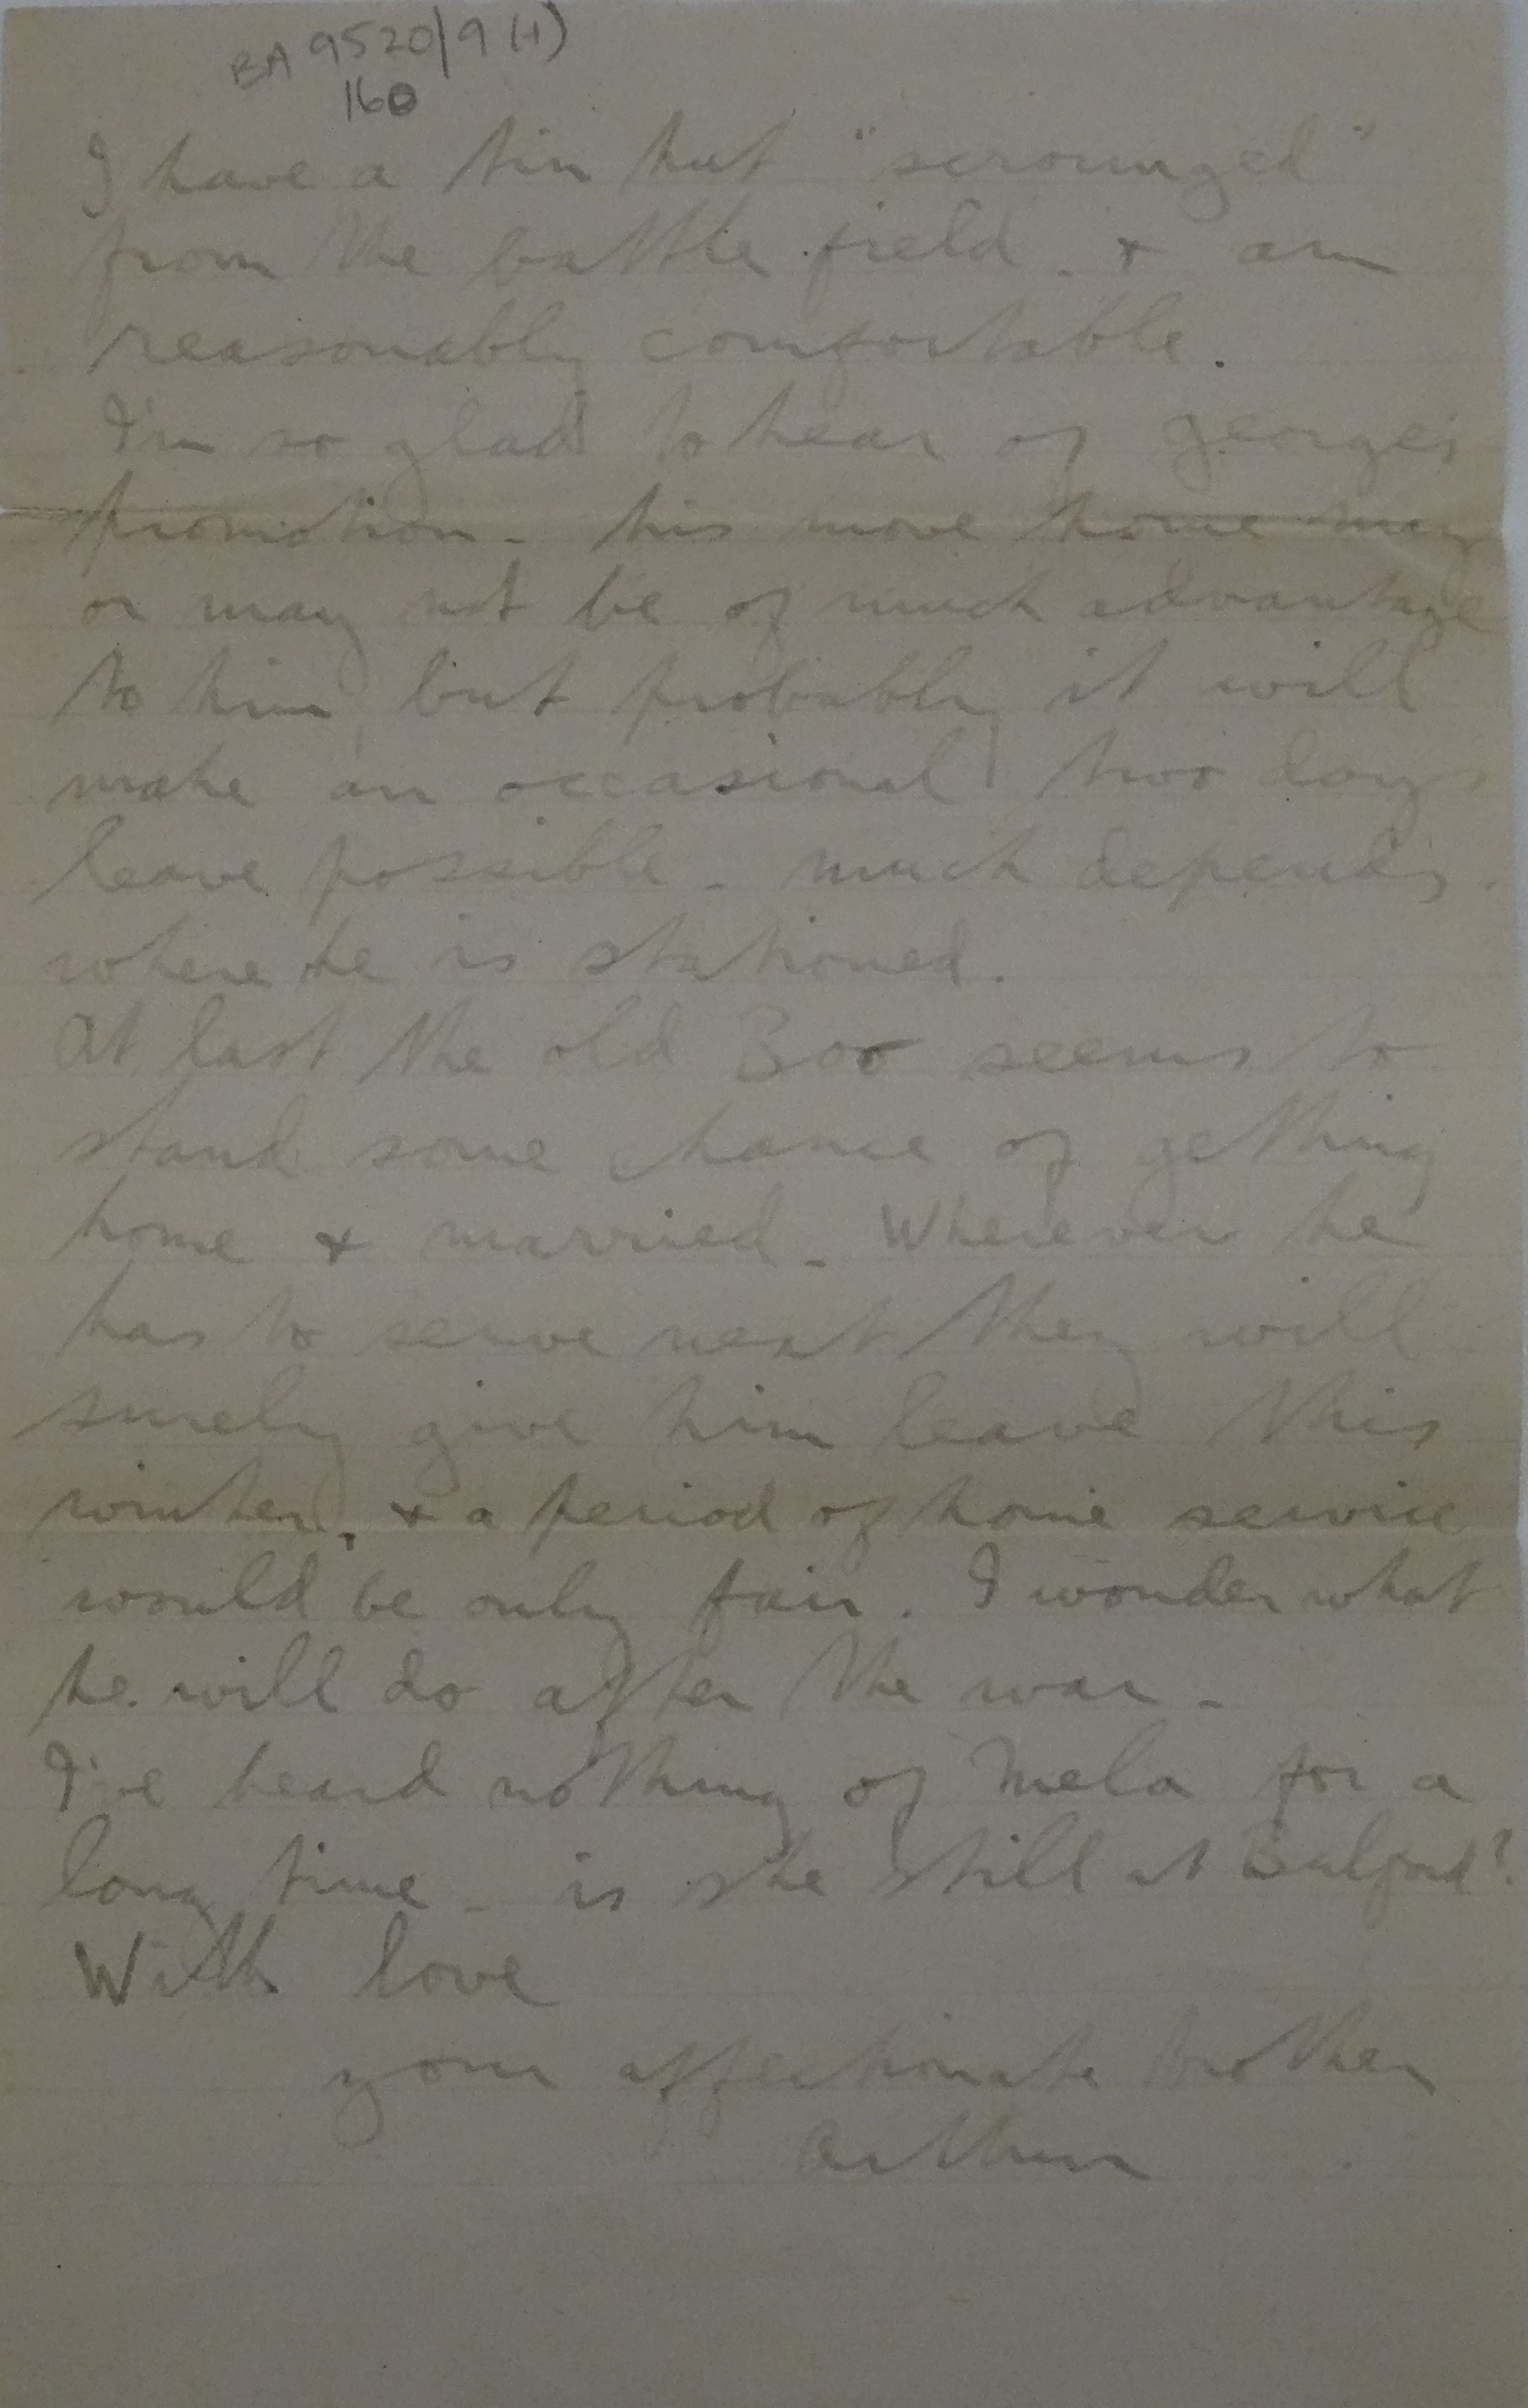 BA 9520/9 (1)
160
I have a tin hut "scrounged"
from the battle field. & am
reasonably comfortable.
I'm so glad to hear of George's
promotion - his move home may
or may not be of much advantage
to him, but probably it will
make an occasional two days
leave possible - much depends
where he is stationed.
At last the old Boo seems to
stand some chance of getting
home & married - Wherever he
has to serve next they will
surely give him leave this
winter, & a period of home service
would be only fair. I wonder what
he will do after the war -
I've heard nothing of Mela for a
long time - is she still at Bulford?
With love
your affectionate brother
Arthur